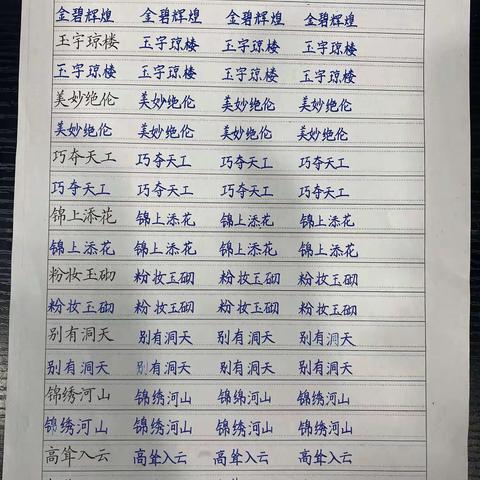 金碧辉煌 金碧辉煌 金碧辉煌 金碧辉煌
玉宇琼楼 玉宇琼楼 玉宇琼楼 玉宇琼楼
玉宇琼楼 玉宇琼楼 玉宇琼楼 玉宇琼楼
美妙绝伦 美妙绝伦 美妙绝伦 美妙绝伦
美妙绝伦 美妙绝伦 美妙绝伦 美妙绝伦
巧夺天工 巧夺天工 巧夺天工 巧夺天工
巧夺天工 巧夺天工 巧夺天工 巧夺天工
锦上添花 锦上添花 锦上添花 锦上添花
锦上添花 锦上添花 锦上添花 锦上添花
粉妆玉砌 粉妆玉砌 粉妆玉砌 粉妆玉砌
粉妆玉砌 粉妆玉砌 粉妆玉砌 粉妆玉砌
别有洞天 别有洞天 别有洞天 别有洞天
别有洞天 别有洞天 别有洞天 别有洞天
锦绣河山 锦绣河山 锦绣河山 锦绣河山
锦绣河山 锦绣河山 锦绣河山 锦绣河山
高耸入云 高耸入云 高耸入云 高耸入云